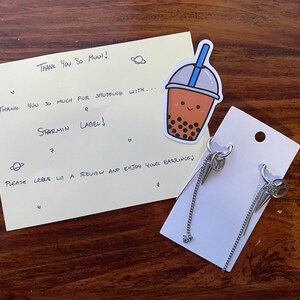 THANK YOU SO MUCH!
THANK YOU SO MUCH FOR SHOPPING WITH...
STARMIN LABEL!
PLEASE LEAVE US A REVIEW AND ENJOY YOUR EARRINGS!